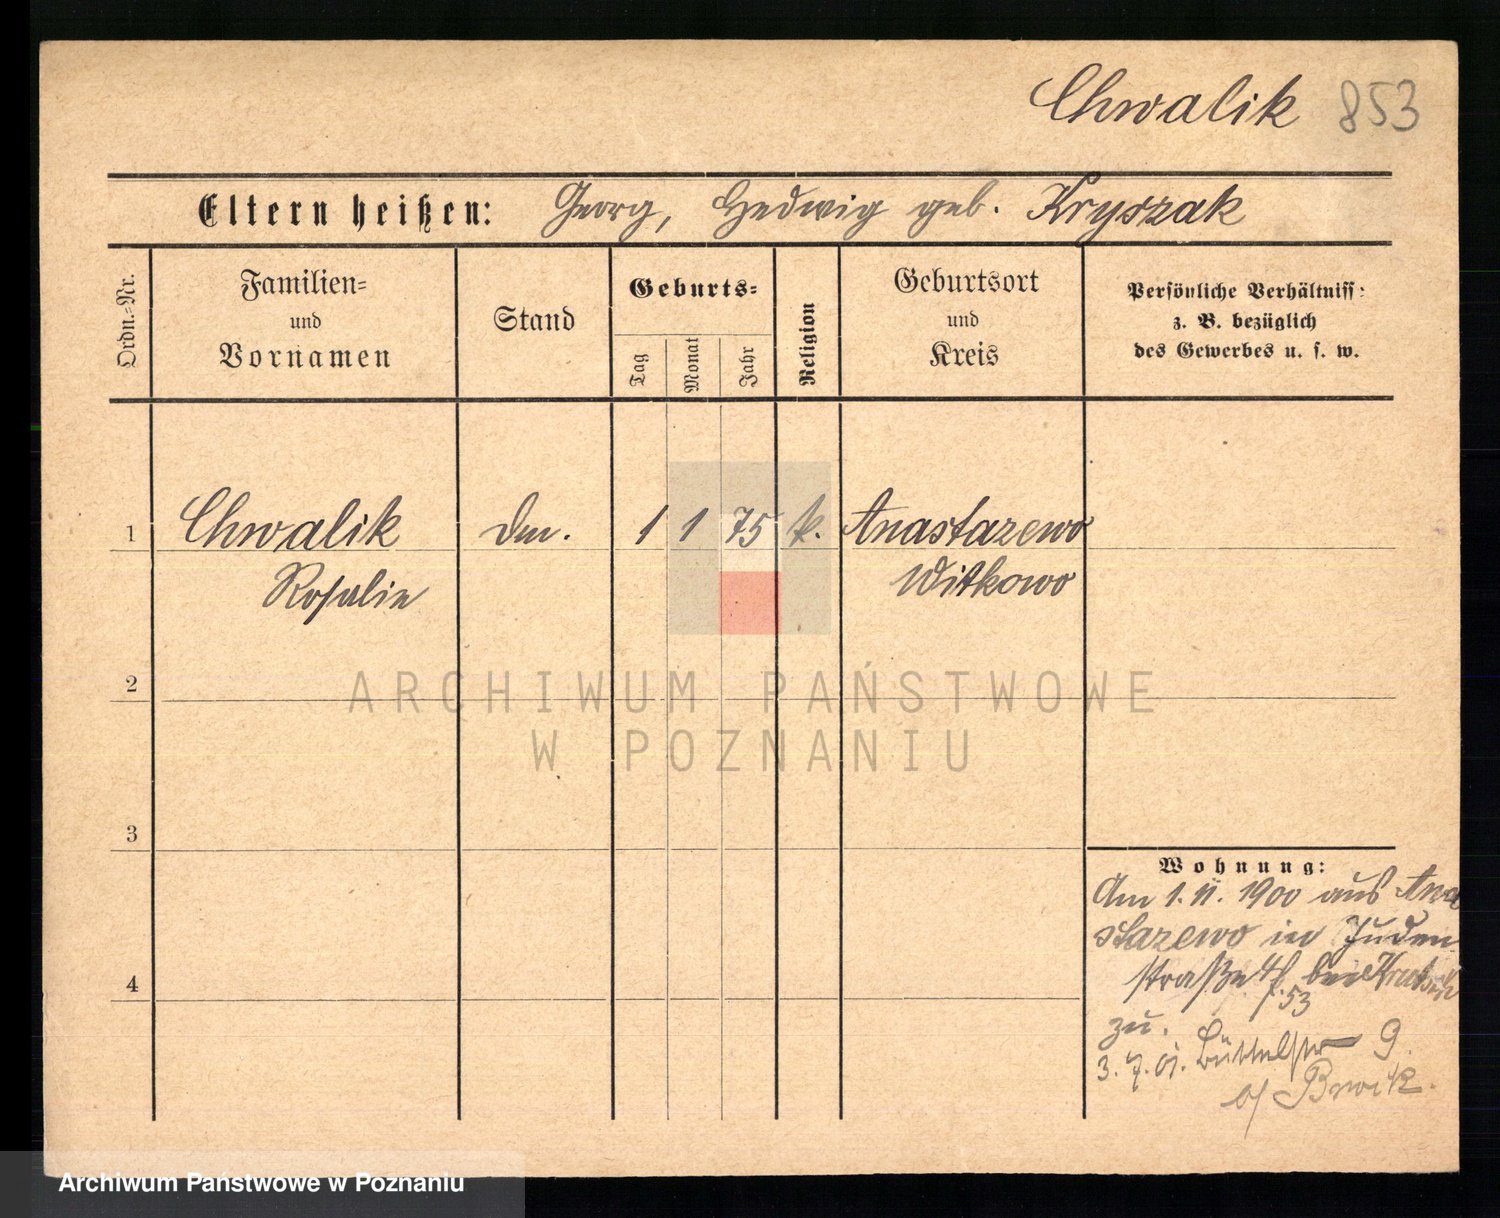 Chwalik 853
Eltern heißen: Georg, Hedwig geb. Kryszak
Ordn.-Nr.
Familien-
und
Vornamen
Stand
Geburts-
Tag
Monat
Jahr
Religion
Geburtsort
und
Kreis
Persönliche Verhältniss:
z. B. bezüglich
des Gewerbes u. s. w.
1 Chwalik 1 1 75 k. Anastazewo
Rosalie Witkowo
2
ARCHIWUM PAŃSTWOWE
W POZNANIU
3
Wohnung:
Am 1. 11. 1900 aus Ana
stazewo in Juden
4
straße bei
f. 53
zu.
3. 7. 01. Büttelstr 9.
b/
Archiwum Państwowe w Poznaniu